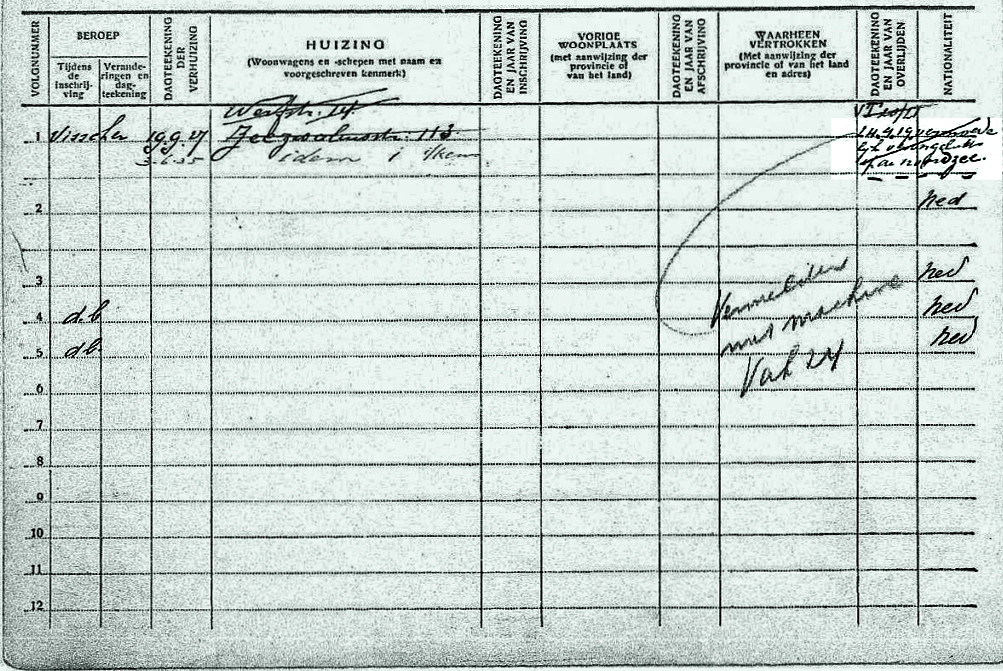 VOLGNUMMER
BEROEP
Tijdens
de
inschrij-
ving
Verande-
ringen en
dag-
teekening
DAGTEEKENING
DER
VERHUIZING
HUIZING
(Woonwagens en -schepen met naam en
voorgeschreven kenmerk)
DAGTEEKENING
EN JAAR VAN
INSCHRIJVING
VORIGE
WOONPLAATS
(met aanwijzing der
provincie of
van het land)
DAGTEEKENING
EN JAAR VAN
AFSCHRIJVING
WAARHEEN
VERTROKKEN
(Met aanwijzing der
provincie of van het land
en adres)
DAGTEEKENING
EN JAAR VAN
OVERLIJDEN
NATIONALITEIT
1 Visscher 19.9.27 113
idem
noordzee.
2 ned
3 ned
4 d.b ned
5 d.b. ned
met machine
Vak 24
6
7
8
9
10
11
12